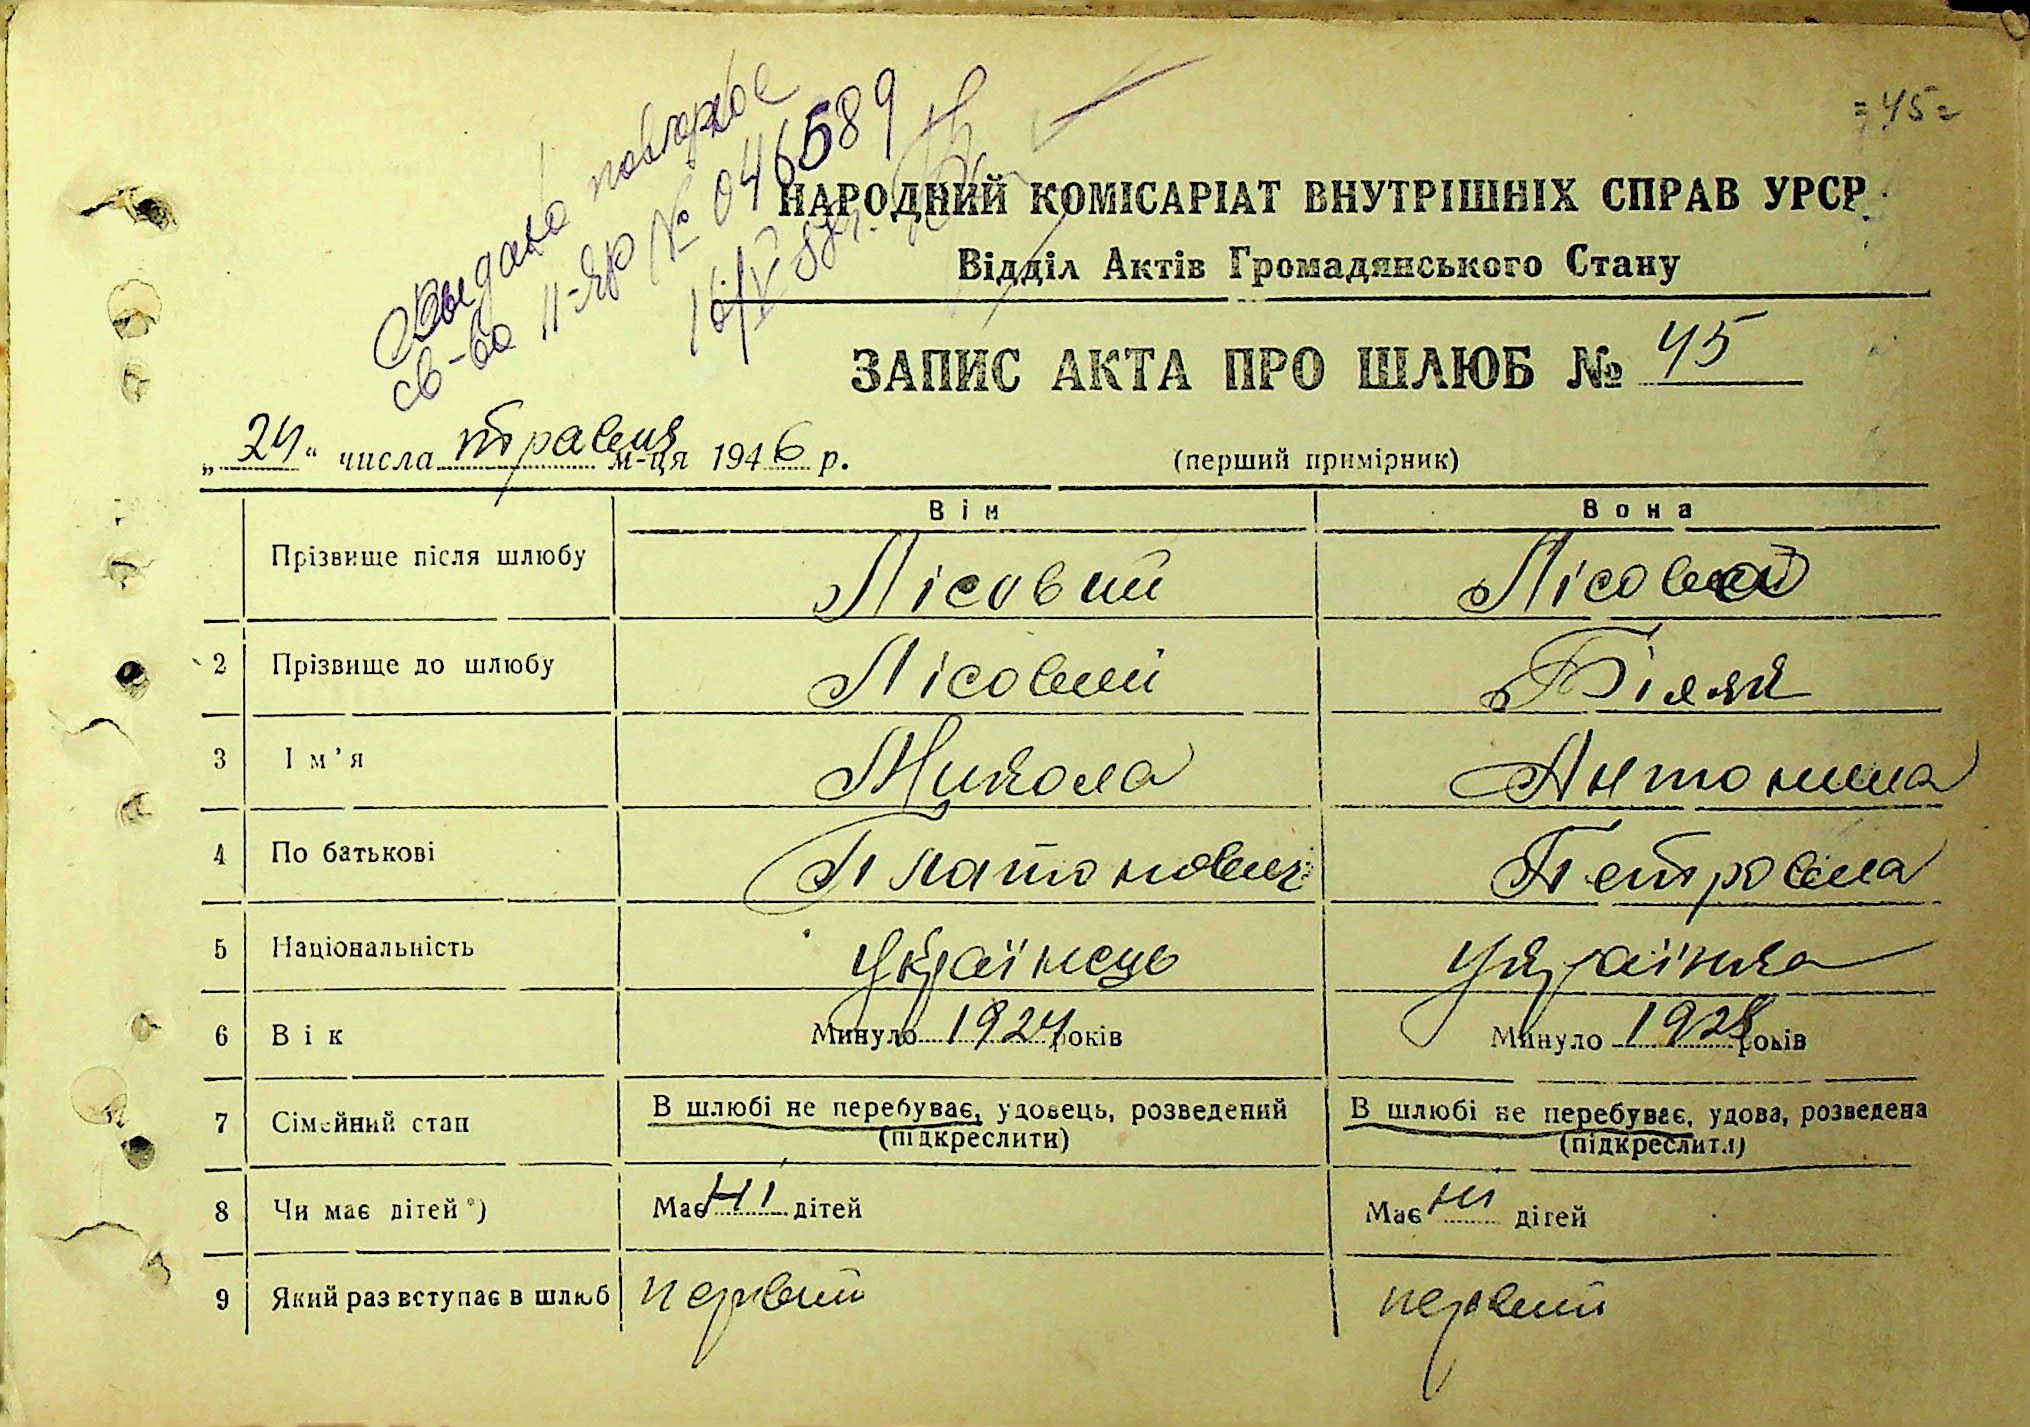 Выдано повторное
св-во II-ЯР № 046589
16/V 88г.
= 45 =
НАРОДНИЙ КОМІСАРІАТ ВНУТРІШНІХ СПРАВ УРСР
Відділ Актів Громадянського Стану
ЗАПИС АКТА ПРО ШЛЮБ № 45
„24“ числа травня м-ця 1946 р. (перший примірник)
Він Вона
Прізвище після шлюбу Лісовий Лісовий
2 Прізвище до шлюбу Лісовий Біляк
3 Ім'я Микола Антонина
4 По батькові Платонович Петровина
5 Національність українець українка
6 Вік Минуло 1924 років Минуло 1928 років
7 Сімейний стан В шлюбі не перебуває, удовець, розведений В шлюбі не перебуває, удова, розведена
(підкреслити) (підкреслити)
8 Чи має дітей*) Має ні дітей Має ні дітей
9 Який раз вступає в шлюб первий первий